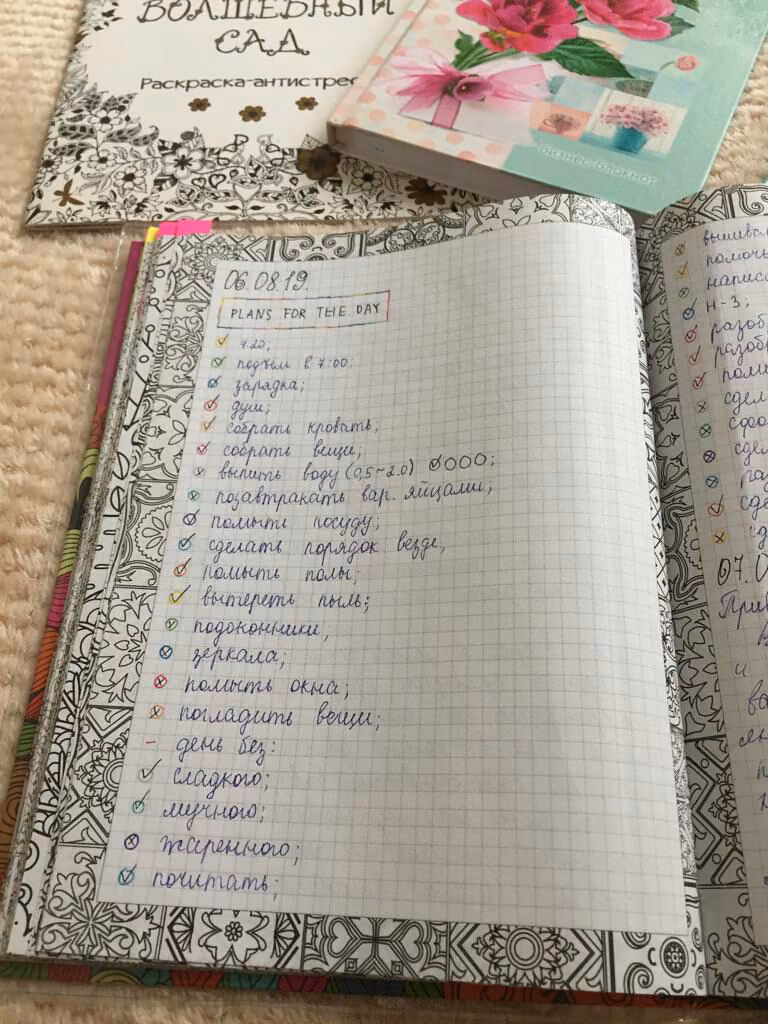 ВОЛШЕБНЫЙ
САД
Раскраска-антистрес
бизнес-блокнот
06.08.19.
PLANS FOR THE DAY
4.20;
подъём в 7:00;
зарядка;
душ;
собрать кровать;
собрать вещи;
выпить воду (0,5~2.0) ;
позавтракать вар. яйцами;
помыть посуду;
сделать порядок везде,
помыть полы;
вытереть пыль;
подоконники,
зеркала;
помыть окна;
погладить вещи;
- день без:
сладкого;
мучного;
жаренного;
почитать;
помочь
написа
н-3;
разоб
разобр
сдел
сде
07.
и